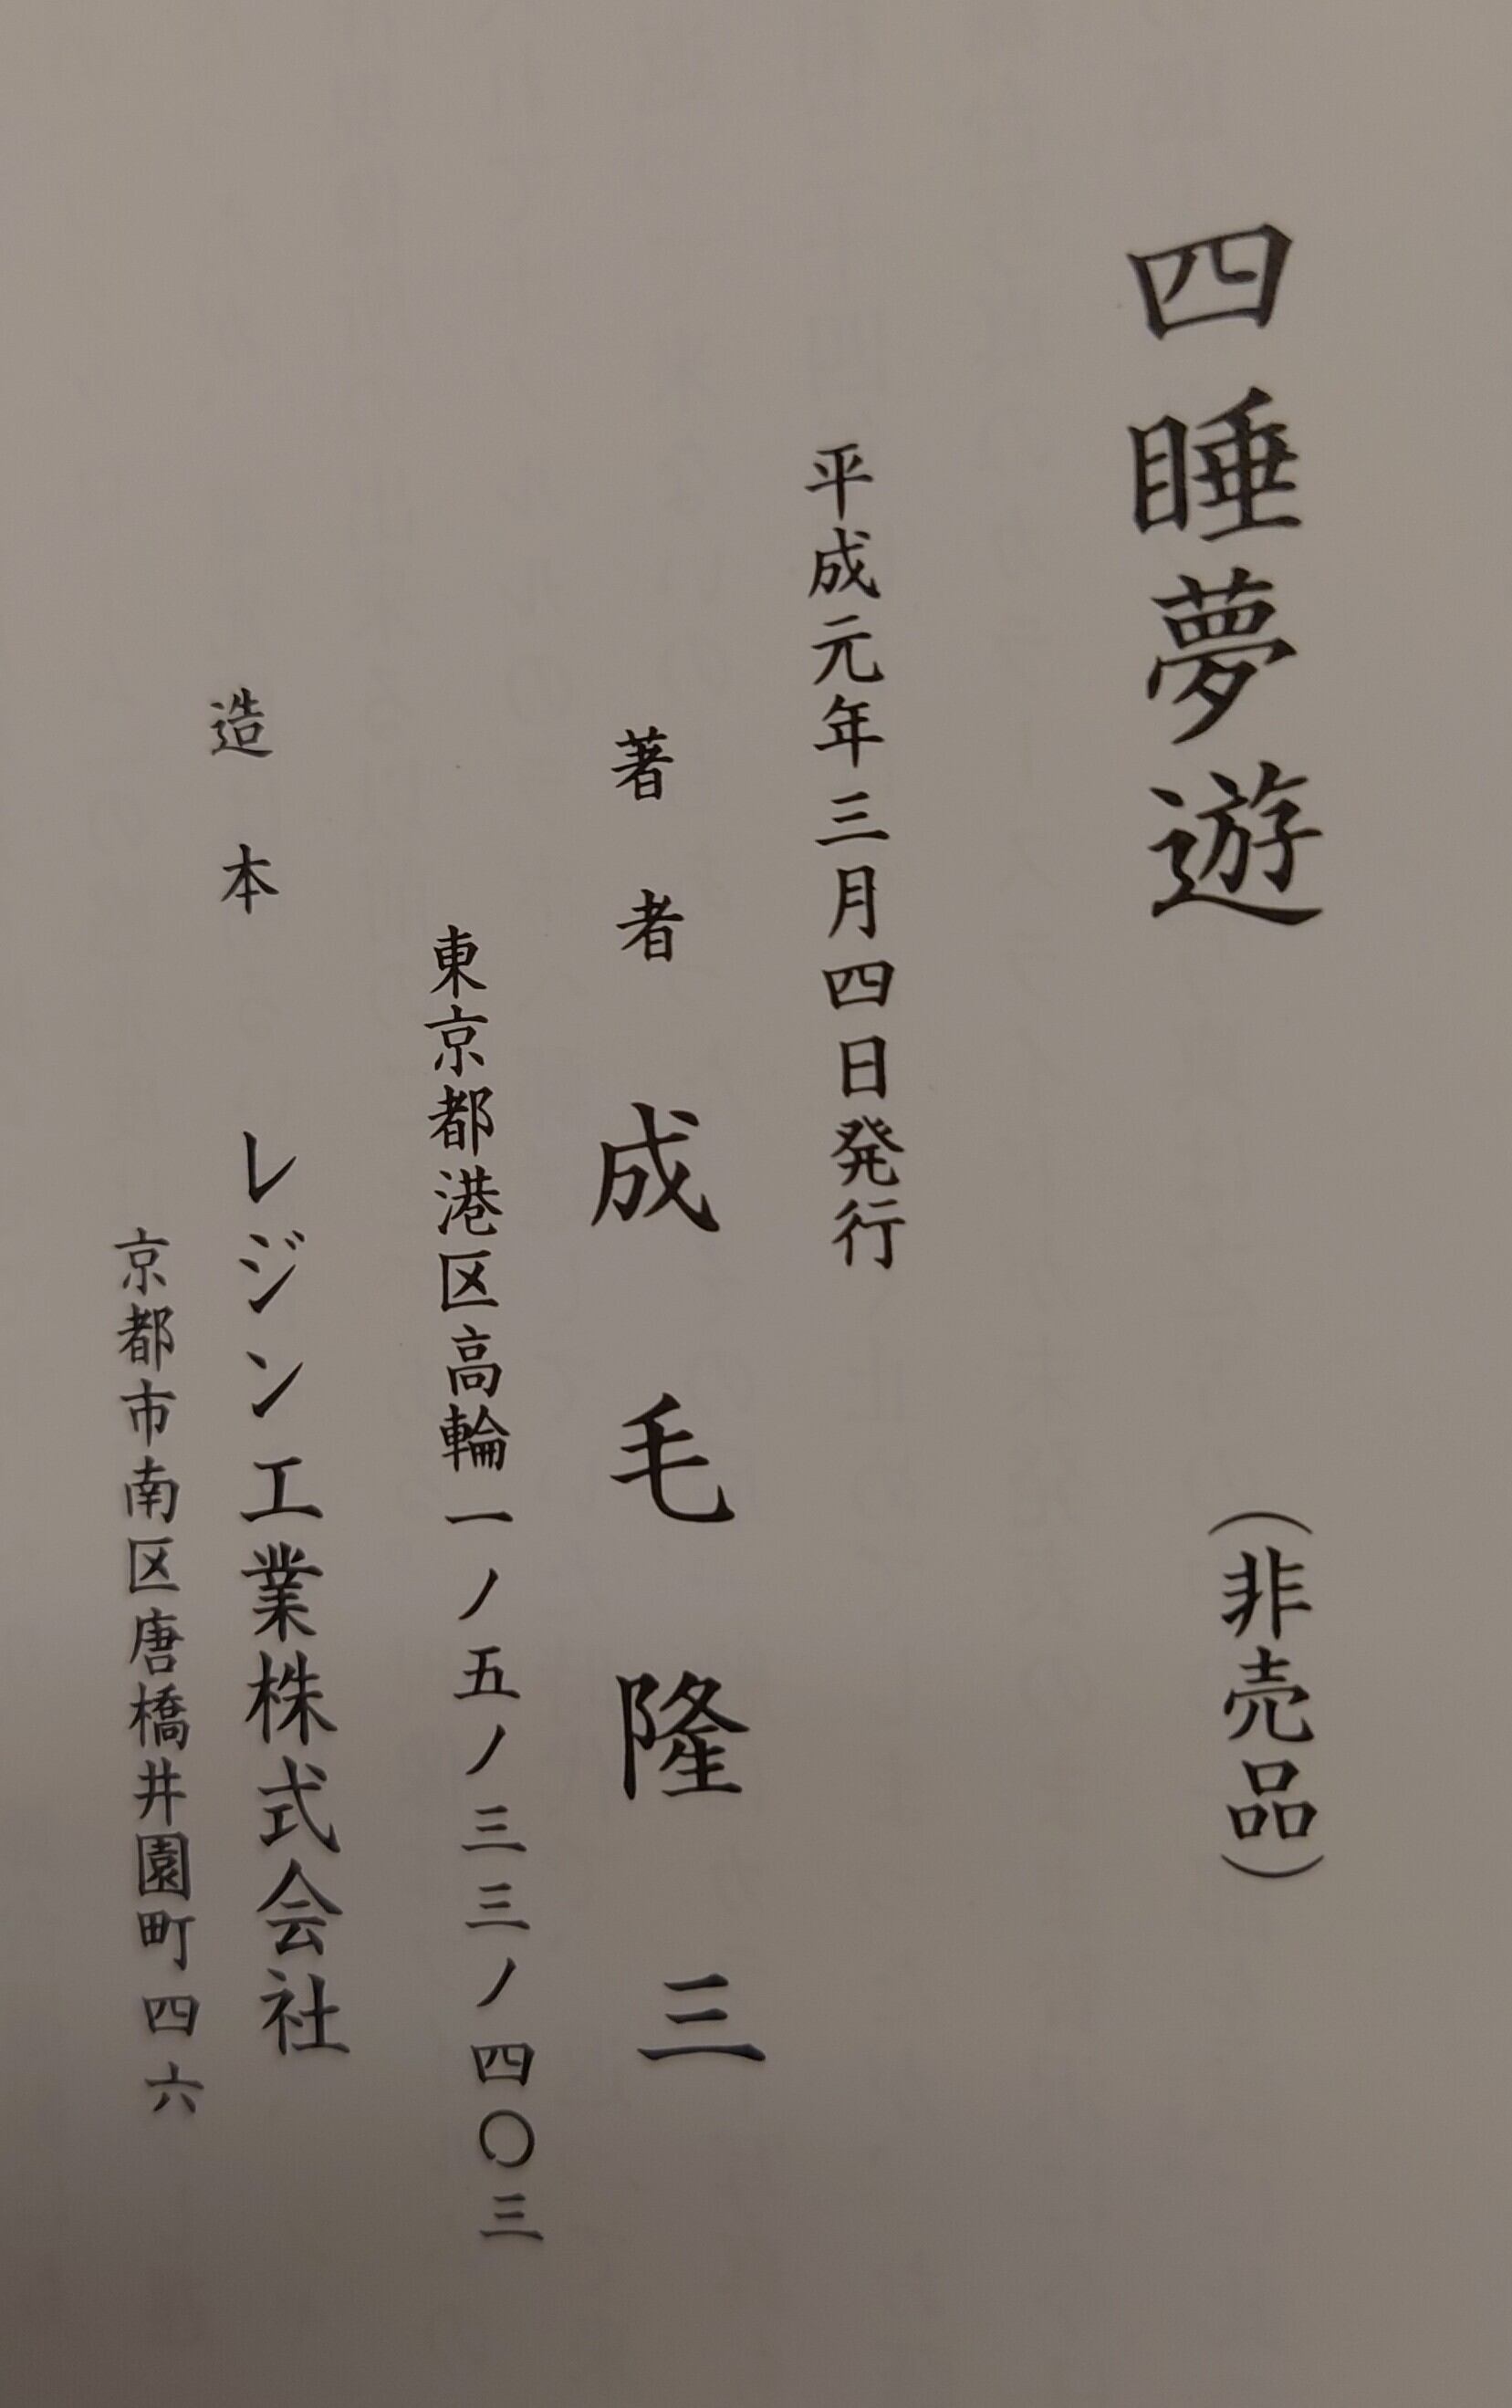 四睡夢遊
（非売品）
平成元年三月四日発行
著者 成毛隆三
東京都港区高輪一ノ五ノ三三ノ四〇三
造本 レジン工業株式会社
京都市南区唐橋井園町四六